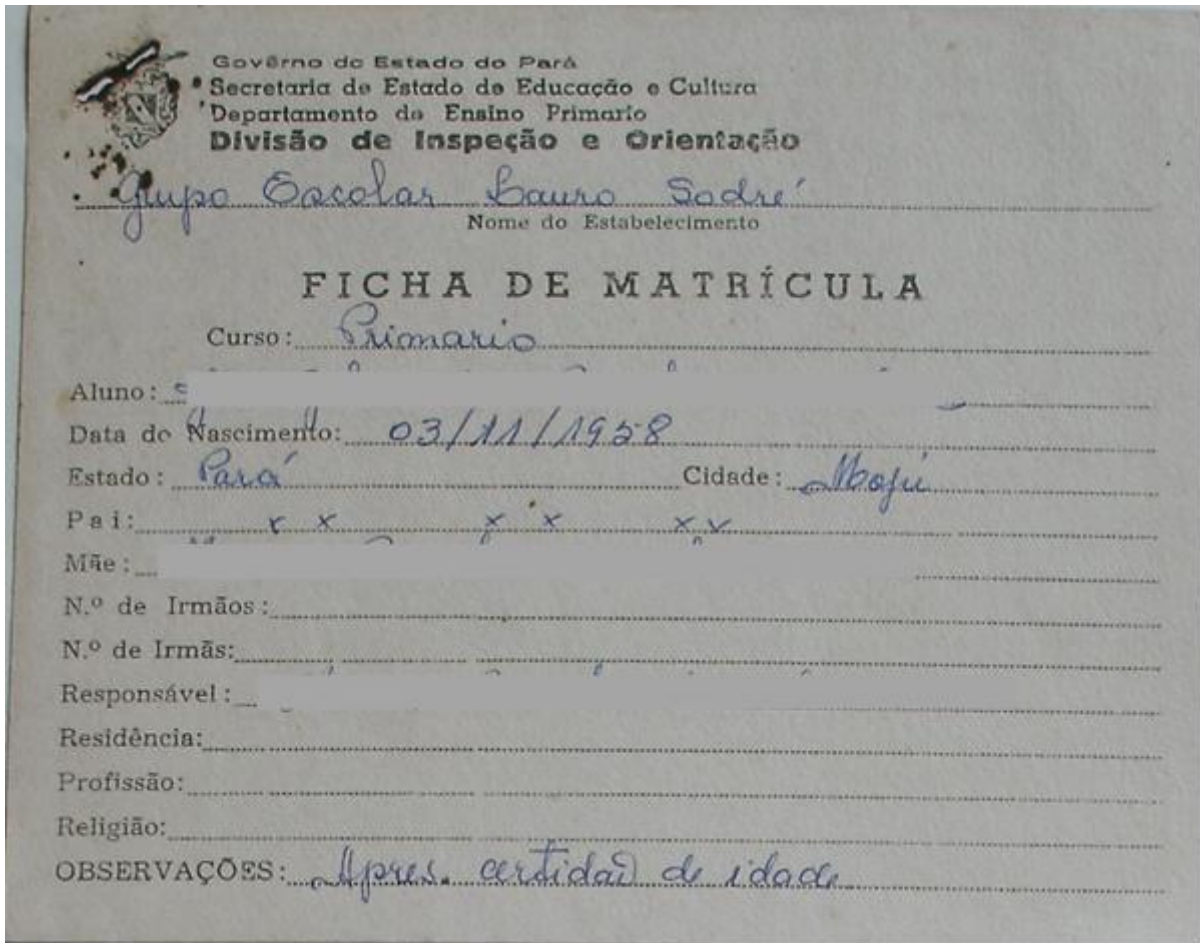 Govêrno do Estado do Pará
Secretaria de Estado de Educação e Cultura
Departamento de Ensino Primario
Divisão de Inspeção e Orientação
Grupo Escolar Lauro Sodré
Nome do Estabelecimento
FICHA DE MATRÍCULA
Curso: Primario
Aluno:
Data de Nascimento: 03/11/1958
Estado: Pará Cidade: Mojú
Pai: x x x x x x
Mãe:
N.º de Irmãos:
N.º de Irmãs:
Responsável:
Residência:
Profissão:
Religião:
OBSERVAÇÕES: Apres. certidão de idade